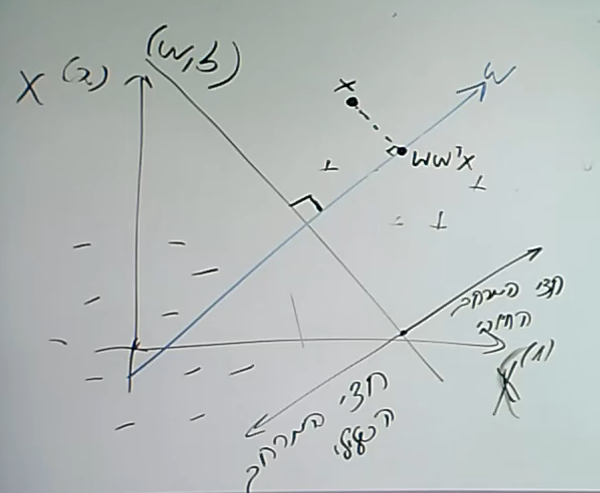 X⁽²⁾
(w,b)
w
x
wwᵀx
חצי המרחב
החיובי
X⁽¹⁾
חצי המרחב
השלילי